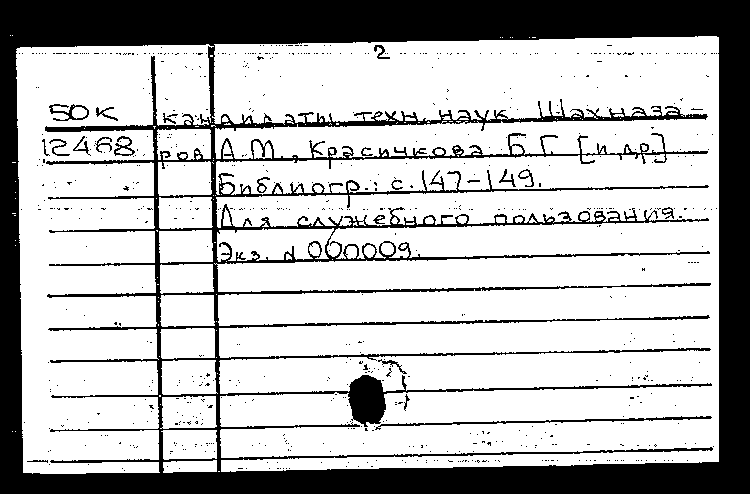 2
50К кандидаты техн. наук Шахназа-
12468 ров А.М., Красичкова Б.Г. [и др.]
Библиогр.: с. 147-149.
Для служебного пользования.
Экз. № 000009.